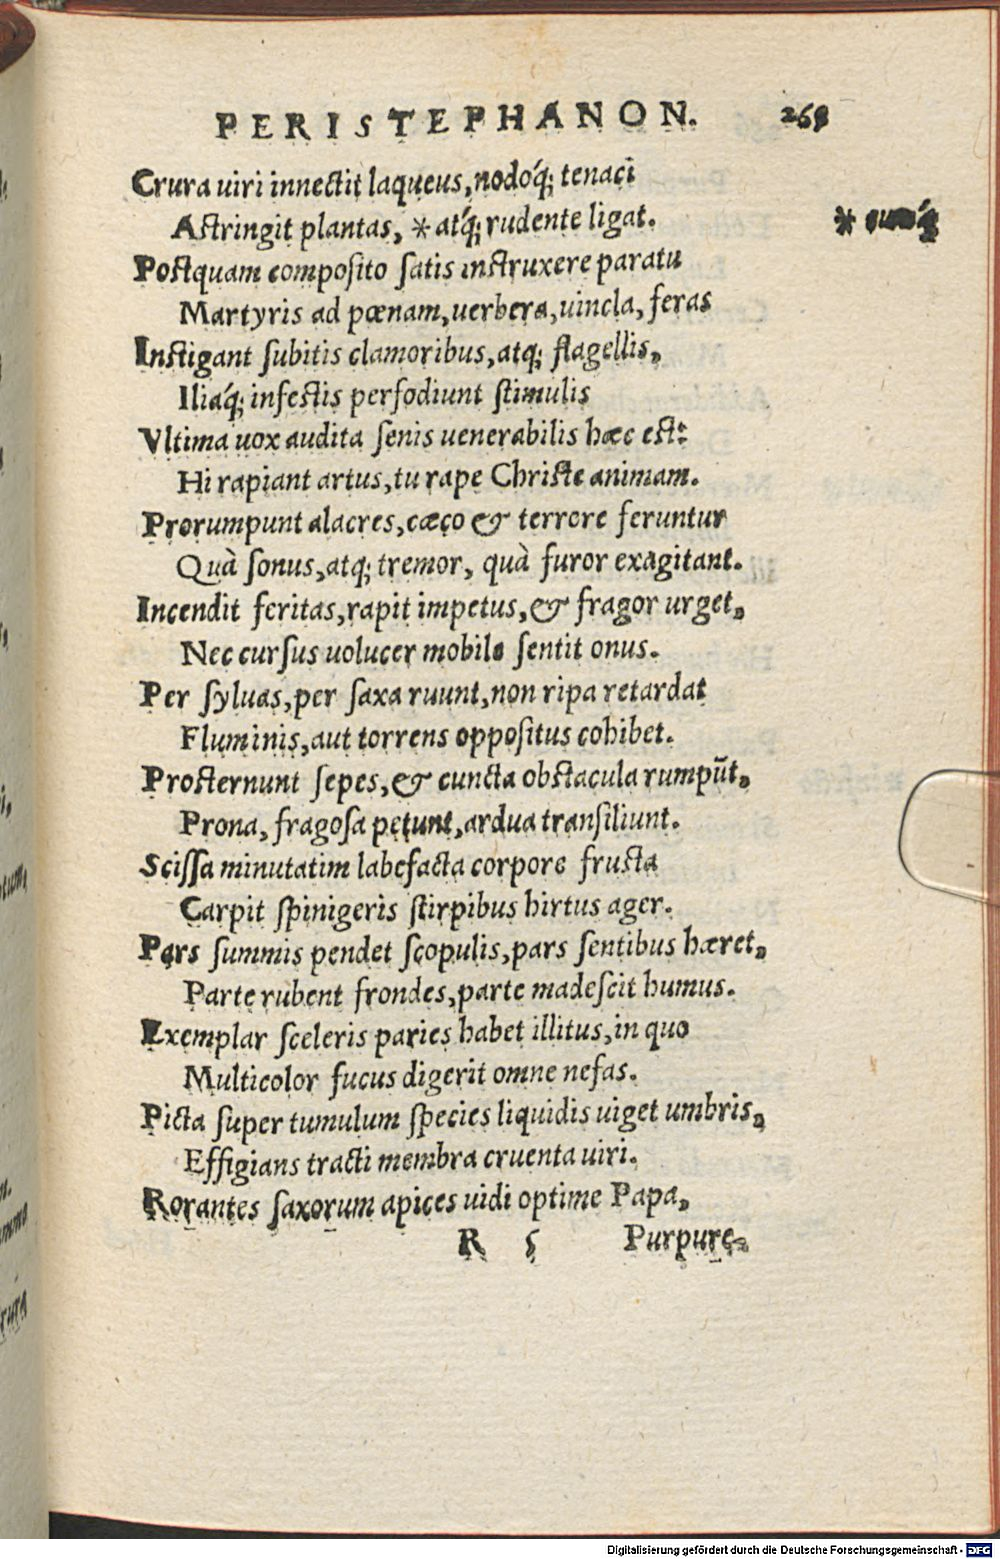 PERISTEPHANON. 269
Crura uiri innectit laqueus, nodoq́; tenaci
Astringit plantas, * atq́; rudente ligat. *
Postquam composito satis instruxere paratu
Martyris ad pœnam, uerbera, uincla, feras
Instigant subitis clamoribus, atq; flagellis,
Iliaq́; infestis perfodiunt stimulis
Vltima uox audita senis uenerabilis hæc est:
Hi rapiant artus, tu rape Christe animam.
Prorumpunt alacres, cæco & terrore feruntur
Quà sonus, atq; tremor, quà furor exagitant.
Incendit feritas, rapit impetus, & fragor urget,
Nec cursus uolucer mobile sentit onus.
Per syluas, per saxa ruunt, non ripa retardat
Fluminis, aut torrens oppositus cohibet.
Prosternunt sepes, & cuncta obstacula rumpūt,
Prona, fragosa petunt, ardua transiliunt.
Scissa minutatim labefacta corpore frusta
Carpit spinigeris stirpibus hirtus ager.
Pars summis pendet scopulis, pars sentibus hæret,
Parte rubent frondes, parte madescit humus.
Exemplar sceleris paries habet illitus, in quo
Multicolor fucus digerit omne nefas.
Picta super tumulum species liquidis uiget umbris,
Effigians tracti membra cruenta uiri.
Rorantes saxorum apices uidi optime Papa,
R 5 Purpure-
Digitalisierung gefördert durch die Deutsche Forschungsgemeinschaft - DFG